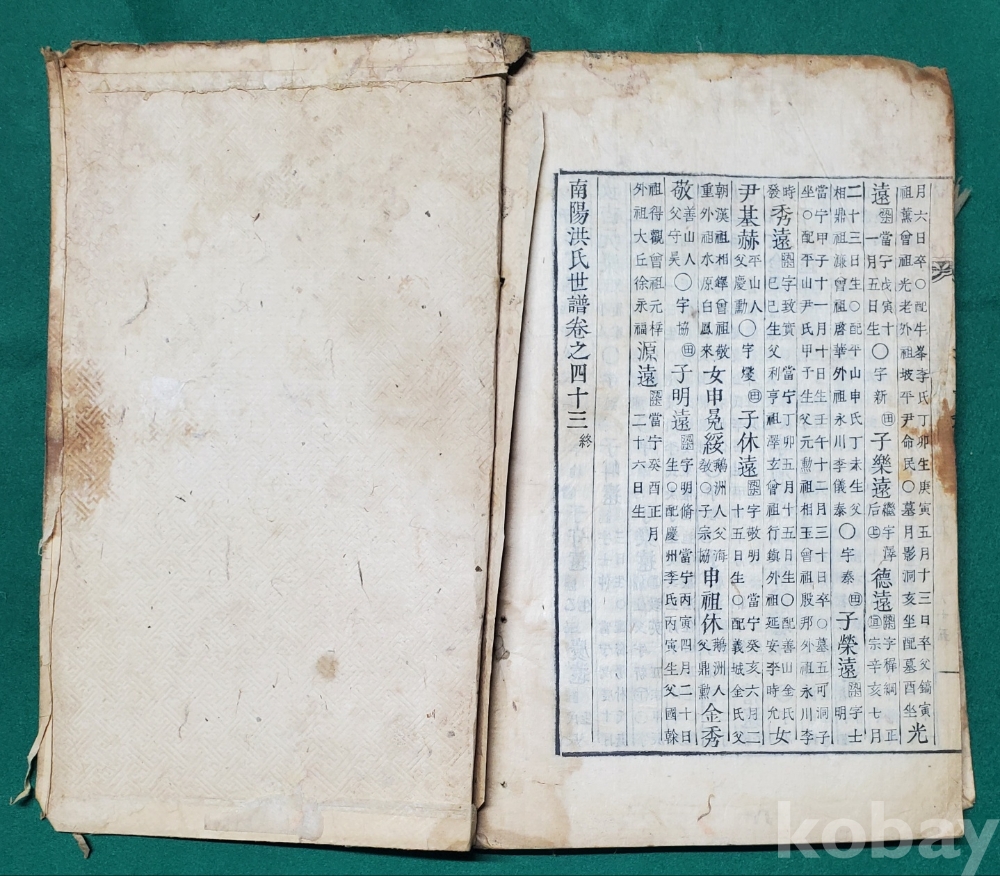 月六日卒〇配牛峯李氏丁卯生庚寅五月十三日卒父鎬寅
祖薰曾祖光老外祖坡平尹命民〇墓月影洞亥坐配墓酉坐光
遠當宁戊寅十一月五日生〇字新子樂遠繼字舜后上德遠字穉綱正宗辛亥七月
二十三日生〇配平山申氏丁未生父相鼎祖謙曾祖啓華外祖永川李儀泰〇字泰子榮遠字士明
當宁甲子十一月十日生壬午十二月三十日卒〇墓五可洞子
坐〇配平山尹氏甲子生父元勳祖相玉曾祖殷邦外祖永川李
時發秀遠字致實當宁丁卯五月十五日生〇配善山金氏己巳生父利亨祖澤玄曾祖行績外祖延安李時允女
尹基赫平山人父慶勳〇字燮子休遠字敬明當宁癸亥六月二十五日生〇配義城金氏父
朝漢祖相鐸曾祖敬重外祖水原白鳳來女申冕綏鵝洲人父海敎〇子宗協申祖休鵝洲人父鼎勳金秀
敬善山人父守昊〇字協子明遠字明脩當宁丙寅四月二十日生〇配慶州李氏丙寅生父國幹
祖得觀曾祖元梓外祖大丘徐永福源遠當宁癸酉正月二十六日生
南陽洪氏世譜卷之四十三終
kobay